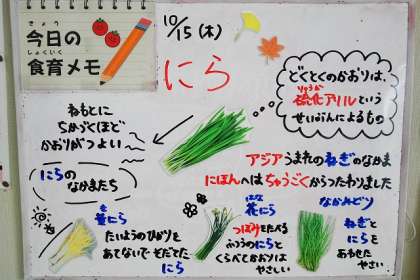 きょう
今日の
しょくいく
食育メモ
10/15(木)
にら
どくとくのかおりは、
りゅうか
硫化アリルという
せいぶんによるもの
ねもとに
ちかづくほど
かおりがつよい
アジアうまれのねぎのなかま
にほんへはちゅうごくからつたわりました
にらの
なかまたち
き
黄にら
たいようのひかりを
あてないでそだてた
にら
はな
花にら
つぼみをたべる
ふつうのにらと
くらべてかおりは
やさしい
なかみどり
ねぎと
にらを
あわせた
やさい